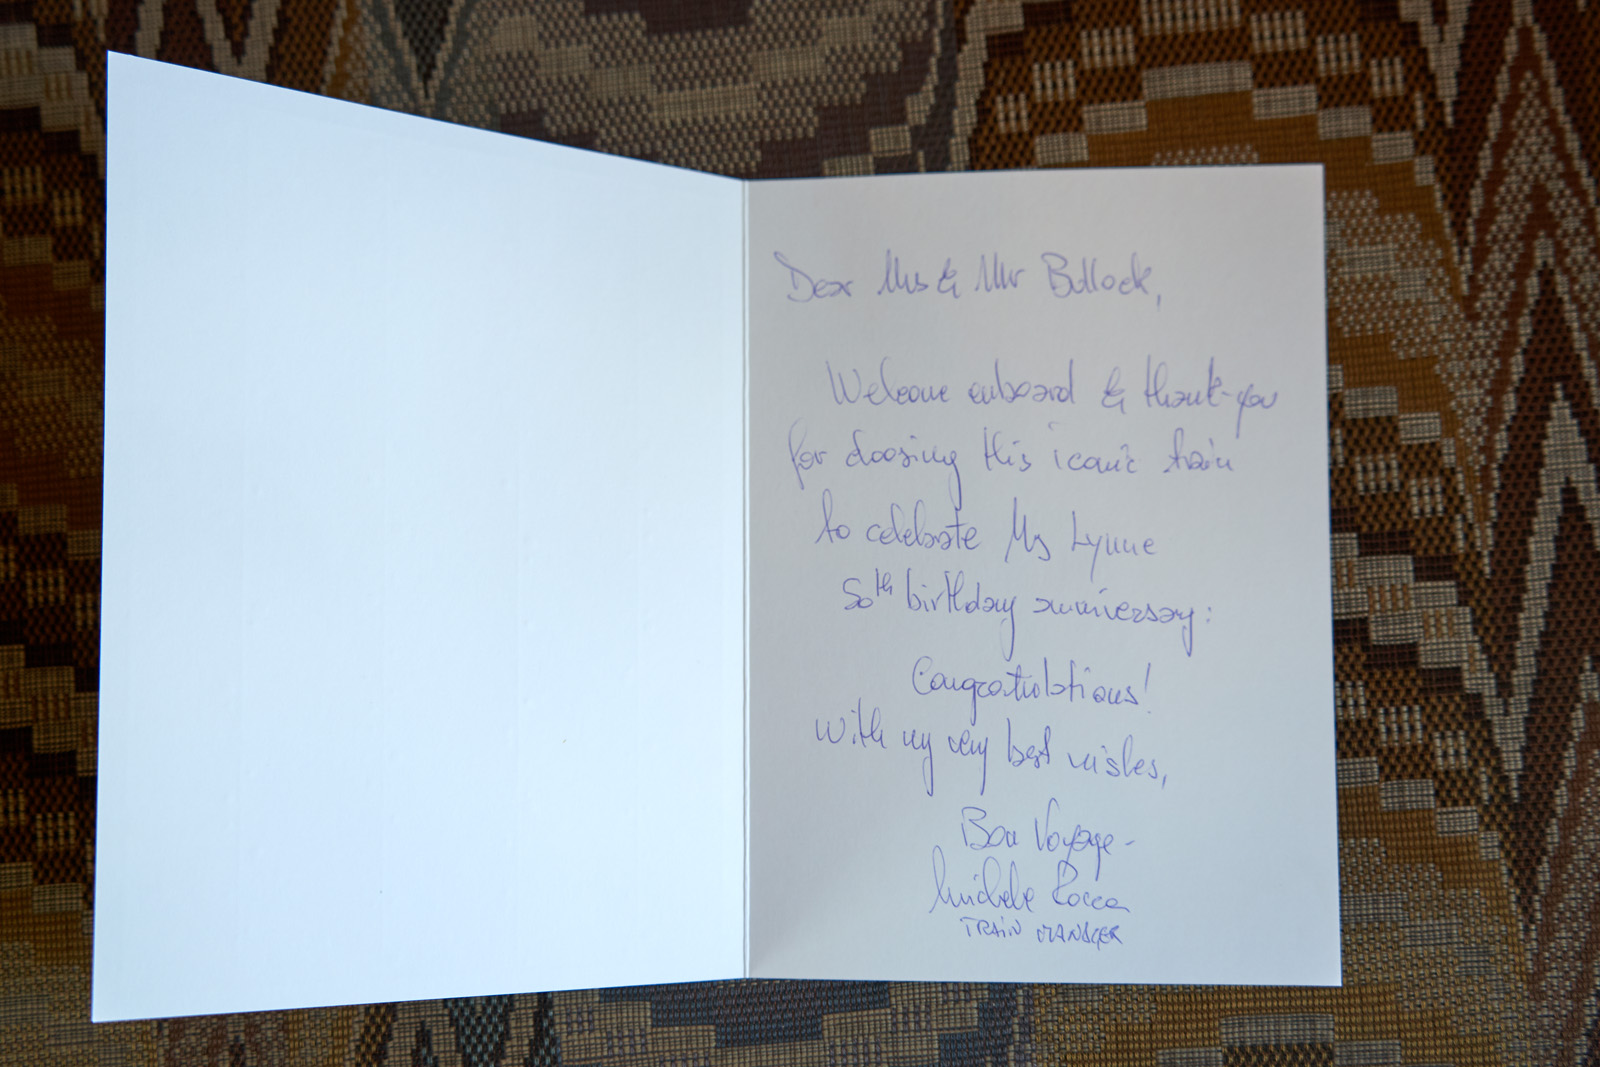 Dear Mrs & Mr Bullock,
Welcome onboard & thank-you
for choosing this iconic train
to celebrate Ms Lynne
50th birthday anniversary:
Congratulations!
With my very best wishes,
Bon Voyage-
Michele Rocca
TRAIN MANAGER